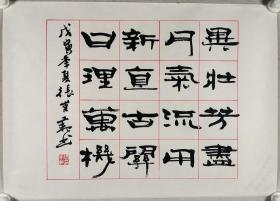 日新月異
理直氣壯
萬古流芳
機關用盡
戊寅季夏張